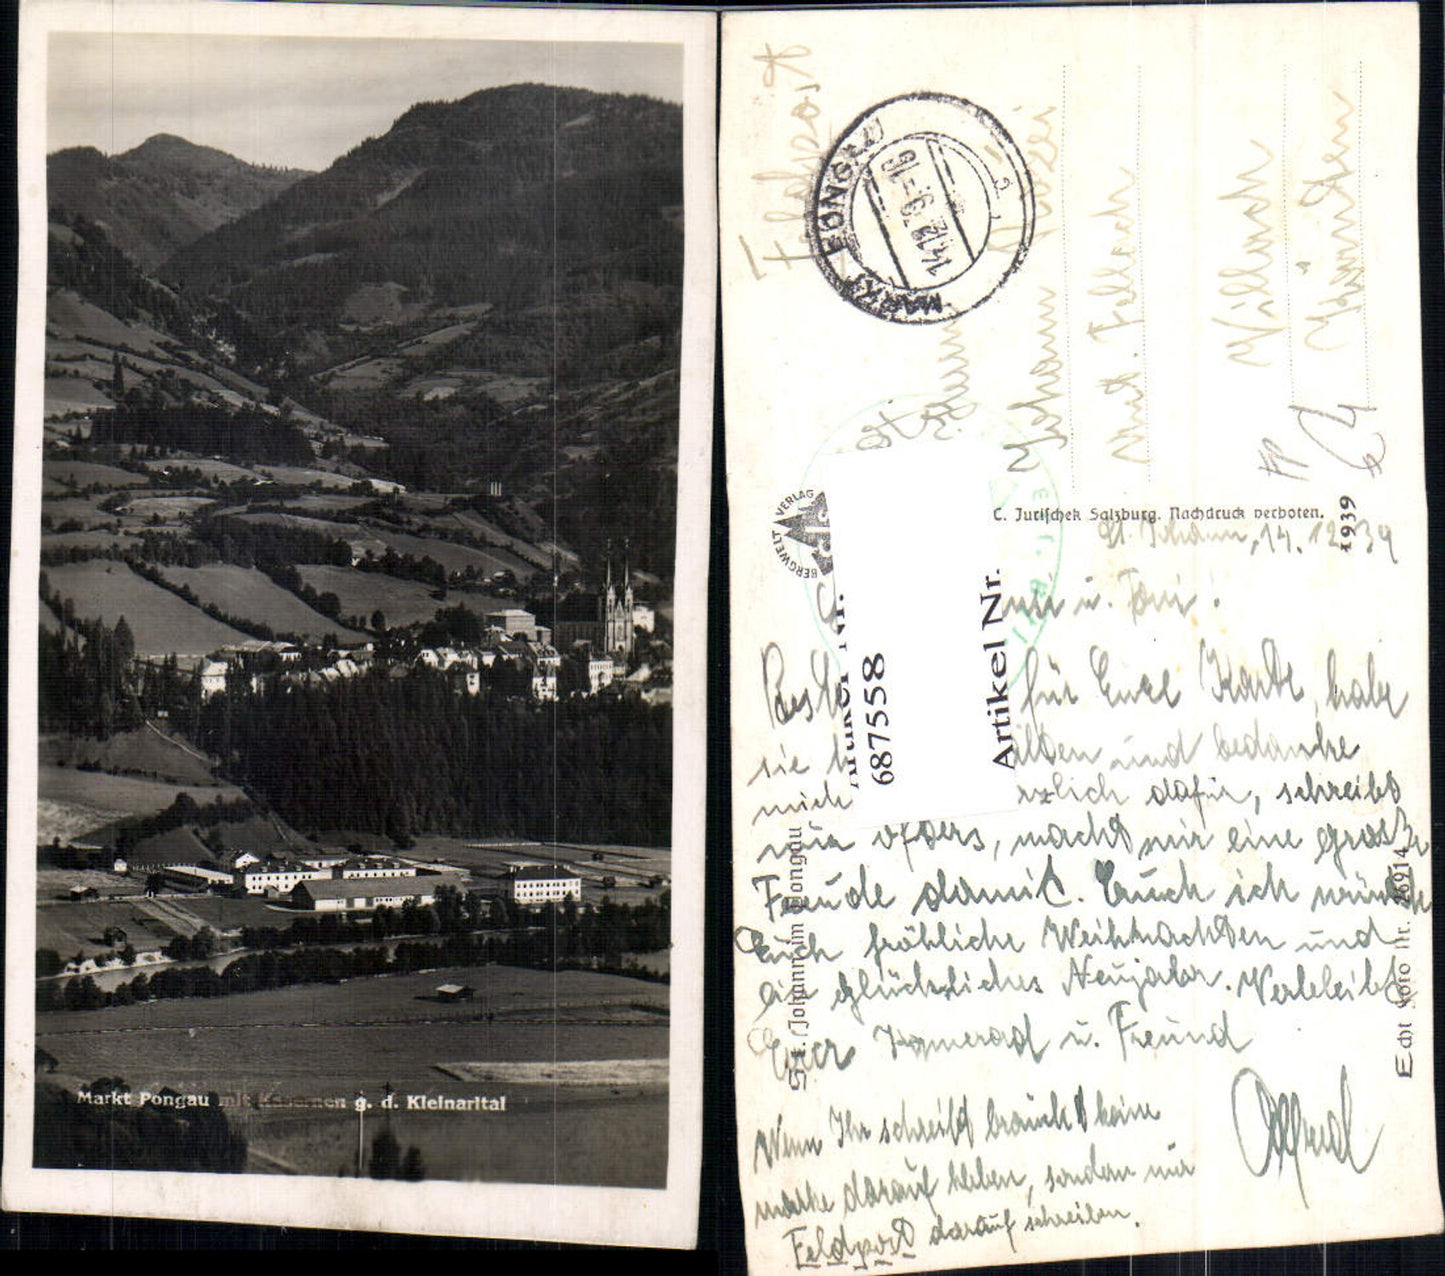 Markt Pongau mit Kasernen g. d. Kleinarltal
Feldpost
MARKT PONGAU
14.12.39.-16
a
Johann
unt. Fellach
Villach
Kärnten
BERGWELT VERLAG
C. Jurischek Salzburg. Nachdruck verboten.
1939
St. Johann, 14. 12. 39
u. Toni!
für Euere Karte, habe
sie und bedanke
mich dafür, schreibt
nur öfders, macht mir eine große
Freude damit. Euch ich wünsche
Euch fröhliche Weihnachten und
ein glückliches Neujahr. Verbleibt
Euer Kamerad u. Freund
Alfred
Wenn Ihr schreibt braucht keine
marke darauf kleben, sondern nur
Feldpost darauf schreiben.
Artikel Nr.
687558
Artikel Nr.
St. Johann im Pongau
Echt Foto Nr. 26914